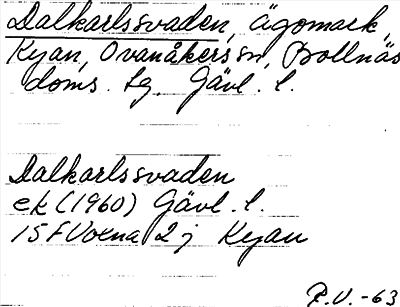 Dalkarlssvaden, ägomark,
Kyan, Ovanåkers sn, Bollnäs
doms. lg, Gävl. l.
Dalkarlssvaden
ek (1960) Gävl. l.
15 F Voxna 2 j Kyan
P.V. -63